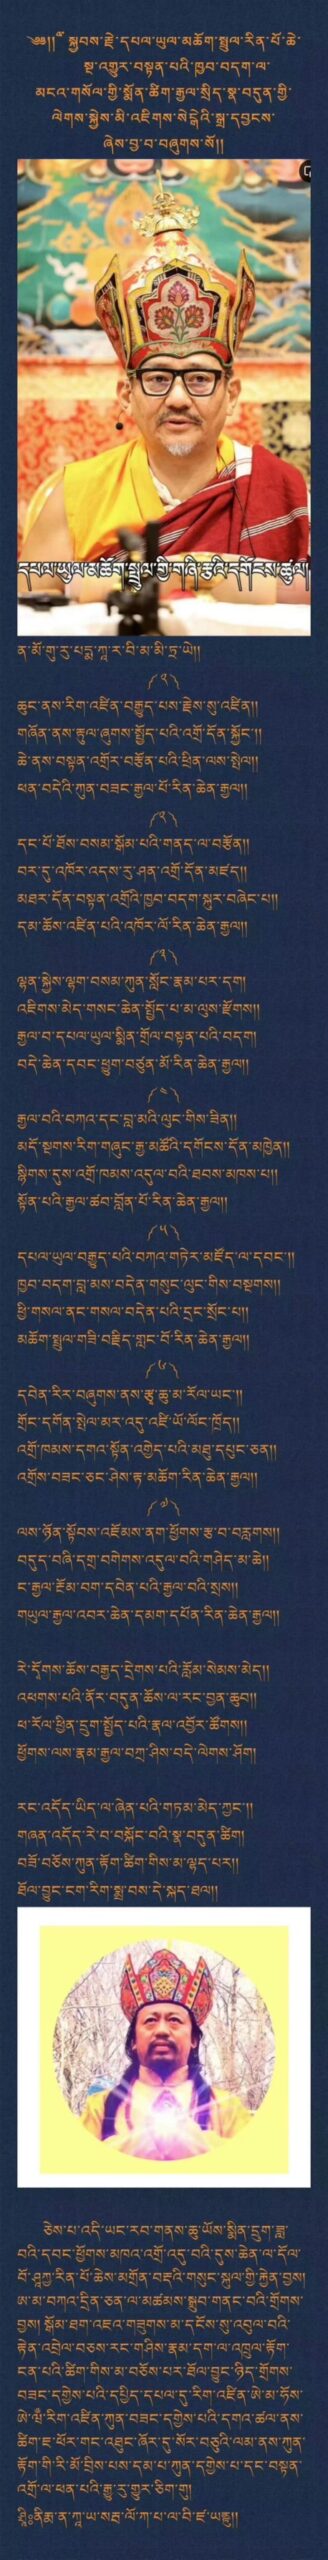 ༄༅།། ༸སྐྱབས་རྗེ་དཔལ་ཡུལ་མཆོག་སྤྲུལ་རིན་པོ་ཆེ་
སྔ་འགྱུར་བསྟན་པའི་ཁྱབ་བདག་ལ་
མངའ་གསོལ་གྱི་སྨོན་ཚིག་རྒྱལ་སྲིད་སྣ་བདུན་གྱི་
ལེགས་སྐྱེས་མི་འཇིགས་སེངྒེའི་སྒྲ་དབྱངས་
ཞེས་བྱ་བ་བཞུགས་སོ།།
དཔལ་ཡུལ་མཆོག་སྤྲུལ་གྱི་གཞི་རྩའི་དགོངས་ཚུལ།
ན་མོ་གུ་རུ་པདྨ་ཀཱ་ར་བི་མ་མི་ཏྲ་ཡེ།།
༼༡༽
ཆུང་ནས་རིག་འཛིན་བརྒྱུད་པས་རྗེས་སུ་འཛིན།།
གཞོན་ནས་རྟུལ་ཞུགས་སྤྱོད་པའི་འགྲོ་དོན་སྐྱོང་།།
ཆེ་ནས་བསྟན་འགྲོར་བརྩོན་པའི་ཕྲིན་ལས་སྤེལ།།
ཕན་བདེའི་ཀུན་བཟང་རྒྱལ་པོ་རིན་ཆེན་རྒྱལ།།
༼༢༽
དང་པོ་ཐོས་བསམ་སྒོམ་པའི་གནད་ལ་བརྩོན།།
བར་དུ་འཁོར་འདས་རུ་ཤན་འགྲོ་དོན་མཛད།།
མཐར་དོན་བསྟན་འགྲོའི་ཁྱབ་བདག་སྐུར་བཞེང་པ།།
དམ་ཆོས་འཛིན་པའི་འཁོར་ལོ་རིན་ཆེན་རྒྱལ།།
༼༣༽
ལྷན་སྐྱེས་ལྷག་བསམ་ཀུན་སློང་རྣམ་པར་དག།
འཇིགས་མེད་གསང་ཆེན་སྤྱོད་པ་མ་ལུས་རྫོགས།།
རྒྱལ་བ་དཔལ་ཡུལ་སྨིན་གྲོལ་བསྟན་པའི་བདག།
བདེ་ཆེན་དབང་ཕྱུག་བཙུན་མོ་རིན་ཆེན་རྒྱལ།།
༼༤༽
རྒྱལ་བའི་བཀའ་དང་བླ་མའི་ལུང་གིས་ཟིན།།
མདོ་སྔགས་རིག་གཞུང་རྒྱ་མཚོའི་དགོངས་དོན་མཁྱེན།།
སྙིགས་དུས་འགྲོ་ཁམས་འདུལ་བའི་ཐབས་མཁས་པ།།
སྟོན་པའི་རྒྱལ་ཚབ་བློན་པོ་རིན་ཆེན་རྒྱལ།།
༼༥༽
དཔལ་ཡུལ་བརྒྱུད་པའི་བཀའ་གཏེར་མཛོད་ལ་དབང་།།
ཁྱབ་བདག་བླ་མས་བདེན་གསུང་ལུང་གིས་བསྔགས།།
ཕྱི་གསལ་ནང་གསལ་བདེན་པའི་དྲང་སྲོང་པ།།
མཆོག་སྤྲུལ་གཟི་བརྗིད་གླང་པོ་རིན་ཆེན་རྒྱལ།།
༼༦༽
དབེན་རིར་བཞུགས་ནས་རྩྭ་ཆུ་མ་རོལ་ཡང་།།
གྲོང་དགོན་སྤེལ་མར་འདུ་འཛི་ཡོ་ལོང་ཁྲོད།།
འགྲོ་ཁམས་དགའ་སྟོན་འགྱེད་པའི་མཐུ་དཔུང་ཅན།།
འགྲོས་བཟང་ཅང་ཤེས་རྟ་མཆོག་རིན་ཆེན་རྒྱལ།།
༼༧༽
ལས་ཉོན་སྟོབས་འཇོམས་ནག་ཕྱོགས་རྩ་བ་བརླགས།།
བདུད་བཞི་དགྲ་བགེགས་འདུལ་བའི་གཤེད་མ་ཆེ།།
ང་རྒྱལ་རྔོམ་བག་དབེན་པའི་རྒྱལ་བའི་སྲས།།
གཡུལ་རྒྱལ་འབར་ཆེན་དམག་དཔོན་རིན་ཆེན་རྒྱལ།།
རེ་དྭོགས་ཆོས་བརྒྱད་དྲེགས་པའི་རློམ་སེམས་མེད།།
འཕགས་པའི་ནོར་བདུན་ཆོས་ལ་རང་བྱན་ཆུབ།།
ཕ་རོལ་ཕྱིན་དྲུག་སྤྱོད་པའི་རྣལ་འབྱོར་ཚོགས།།
ཕྱོགས་ལས་རྣམ་རྒྱལ་བཀྲ་ཤིས་བདེ་ལེགས་ཤོག།
རང་འདོད་ཡིད་ལ་ཞེན་པའི་གཏམ་མེད་ཀྱང་།།
གཞན་འདོད་རེ་བ་བསྐོང་བའི་སྣ་བདུན་ཚིག།
བཟོ་བཅོས་ཀུན་རྟོག་ཚིག་གིས་མ་ལྷད་པར།།
ཐོལ་བྱུང་ངག་རིག་སྨྲ་བས་དེ་སྐད་ཐལ།།
ཅེས་པ་འདི་ཡང་རབ་གནས་ཆུ་ཡོས་སྨིན་དྲུག་ཟླ་
བའི་དབང་ཕྱོགས་མཁའ་འགྲོ་འདུ་བའི་དུས་ཆེན་ལ་དོལ་
པོ་ཤཱཀྱ་རིན་པོ་ཆེས་མགྲོན་བརྡའི་གསུང་སྐུལ་གྱི་རྐྱེན་བྱས།
ཨ་མ་བཀའ་དྲིན་ཅན་ལ་མཚམས་སྒྲུབ་གནང་བའི་གྲོགས་
བྱས། སྒོམ་ཐག་འཇའ་གཟུགས་མ་དངོས་སུ་འབུལ་བའི་
རྟེན་འབྲེལ་བཅས་རང་གཤིས་རྣམ་དག་ལ་འཁྲུལ་རྟོག་
ངན་པའི་ཚིག་གིས་མ་བཅོས་པར་ཐོལ་བྱུང་ཉིད་གྲོགས་
བཟང་དགྱེས་པའི་དཔྱིད་དཔལ་དུ་རིག་འཛིན་ཨེ་མ་ཧོས་
རིག་འཛིན་ཀུན་བཟང་དགྱེས་པའི་དགའ་ཚལ་ནས་
ཚིག་ཇ་ཕོར་གང་འཐུང་ཞོར་དུ་སོར་བཅུའི་ལམ་ནས་ཀུན་
རྟོག་གི་རི་མོ་བྲིས་པས་དམ་པ་ཀུན་དགྱེས་པ་དང་བསྟན་
འགྲོ་ལ་ཕན་པའི་རྒྱུ་རུ་གྱུར་ཅིག་གུ།